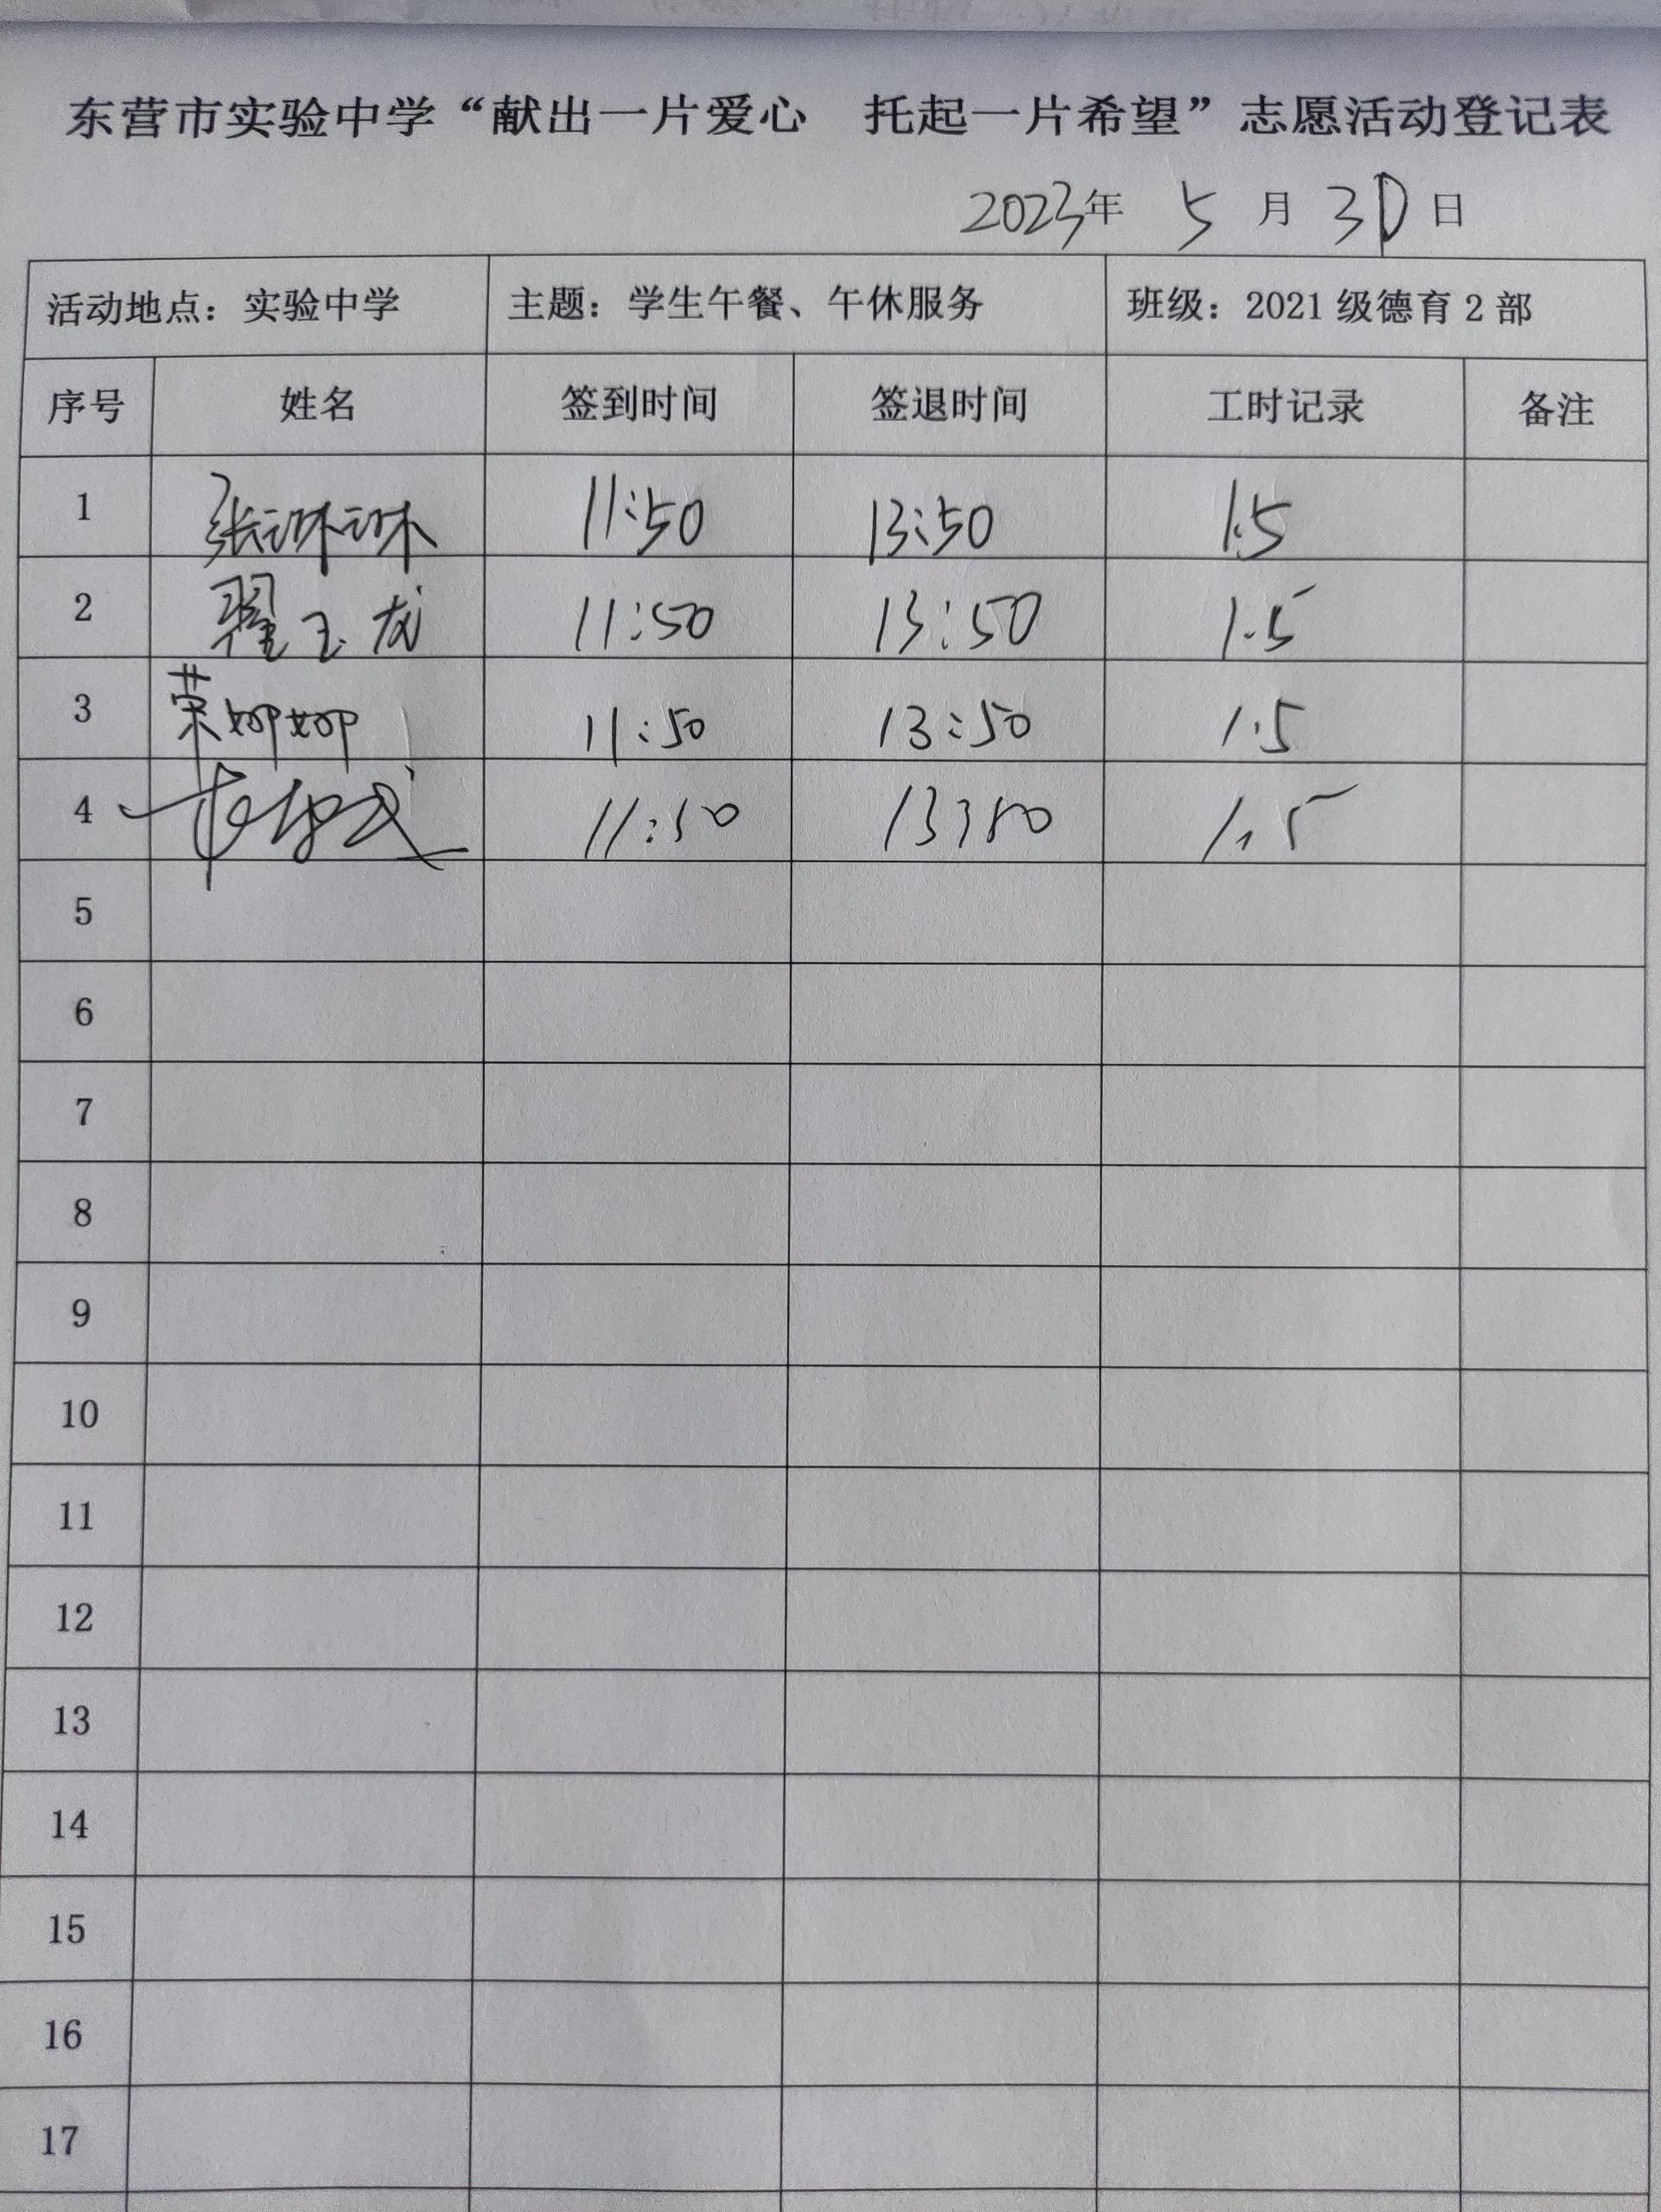 东营市实验中学“献出一片爱心　托起一片希望”志愿活动登记表
2023年 5 月 30 日
活动地点：实验中学 主题：学生午餐、午休服务 班级：2021级德育2部
序号 姓名 签到时间 签退时间 工时记录 备注
1 张 11:50 13:50 1.5
2 翟玉龙 11:50 13:50 1.5
3 荣 11:50 13:50 1.5
4 11:50 13:50 1.5
5
6
7
8
9
10
11
12
13
14
15
16
17